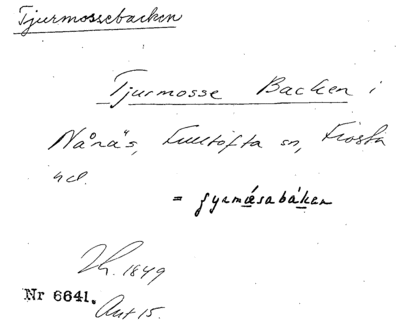 Tjurmossebacken
Tjurmosse Backen i
Nånäs, Gullöfta sn, Frosta
hd.
= ʃyrmǽsabákan
1849
Nr 6641.
Ant 15.